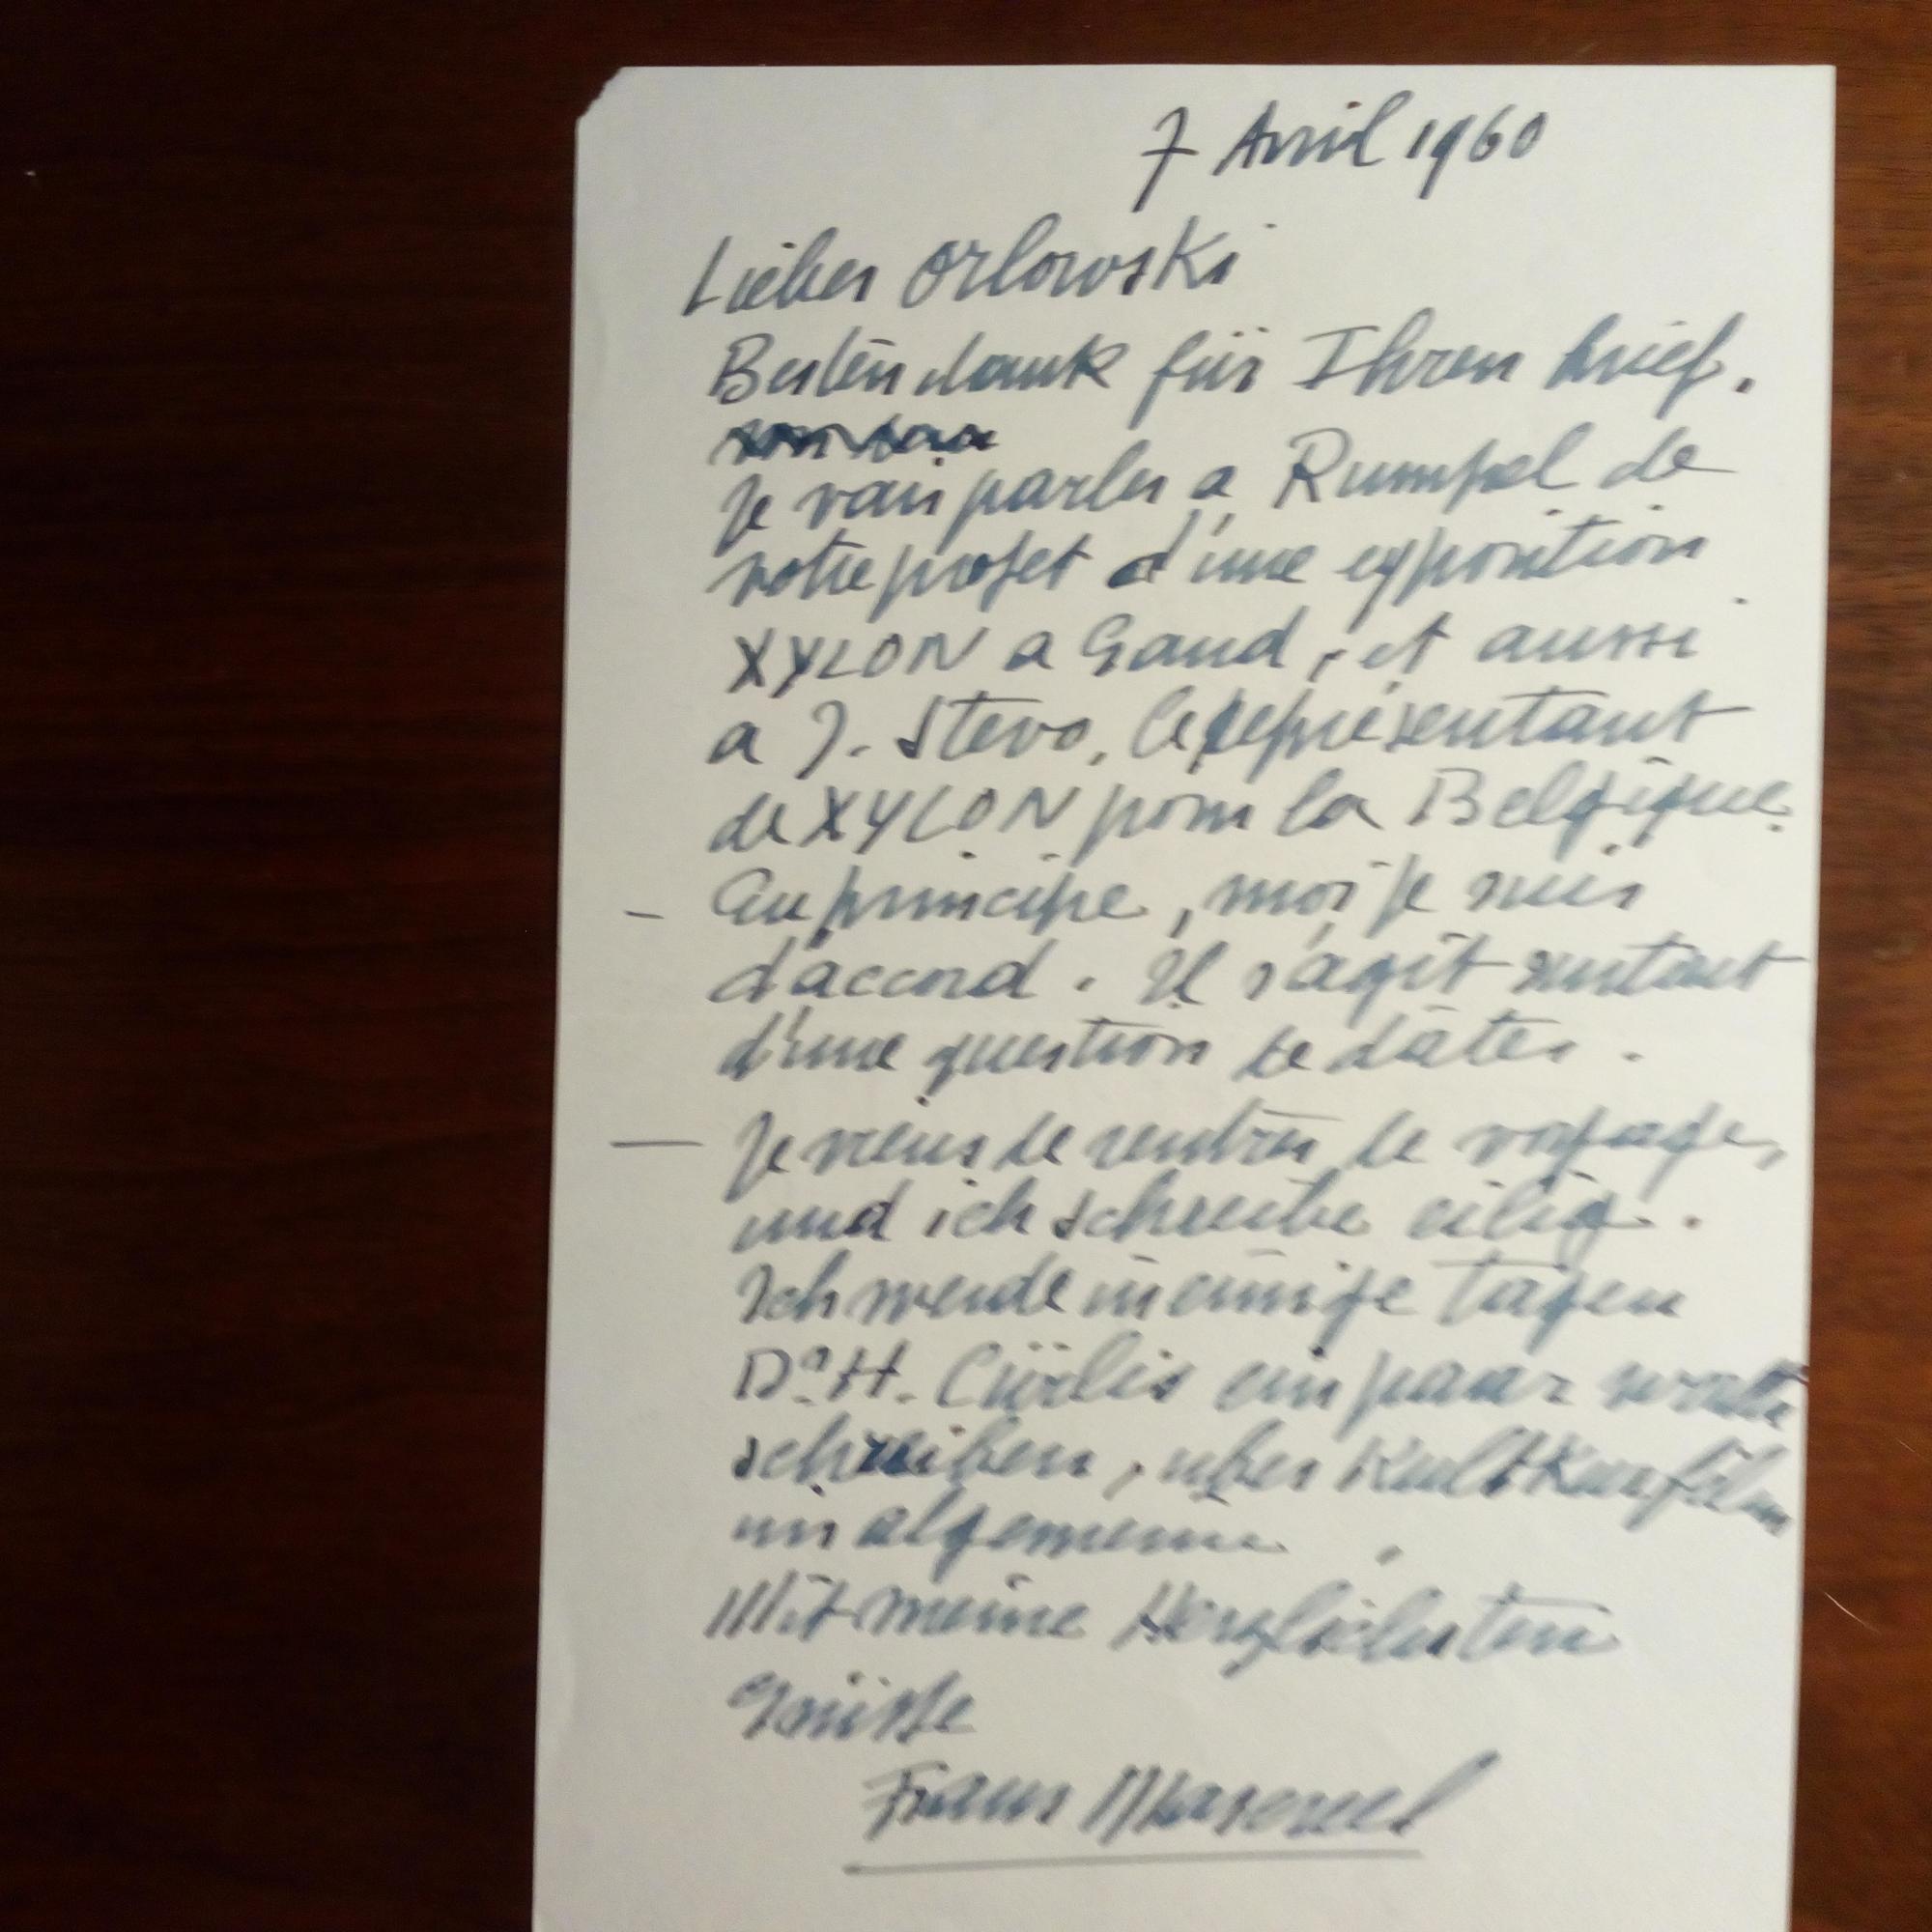 7 Avril 1960
Lieber Orlowski
Besten dank für Ihren brief.
Je vais parler a Rumpel de
votre projet d'une exposition
XYLON a Gand, et aussi
a J. Stevo, le représentant
de XYLON pour la Belgique.
- En principe, moi je suis
d'accord. Il s'agit surtout
d'une question de dates.
— Je viens de rentrer de voyage,
und ich schreibe eilig.
Ich werde in einige tagen
Dr H. Cürlis ein paar worte
schreiben, uber Kultkurfilm
in algemeine.
Mit meine Herzlichsten
Grüsse
Frans Masereel